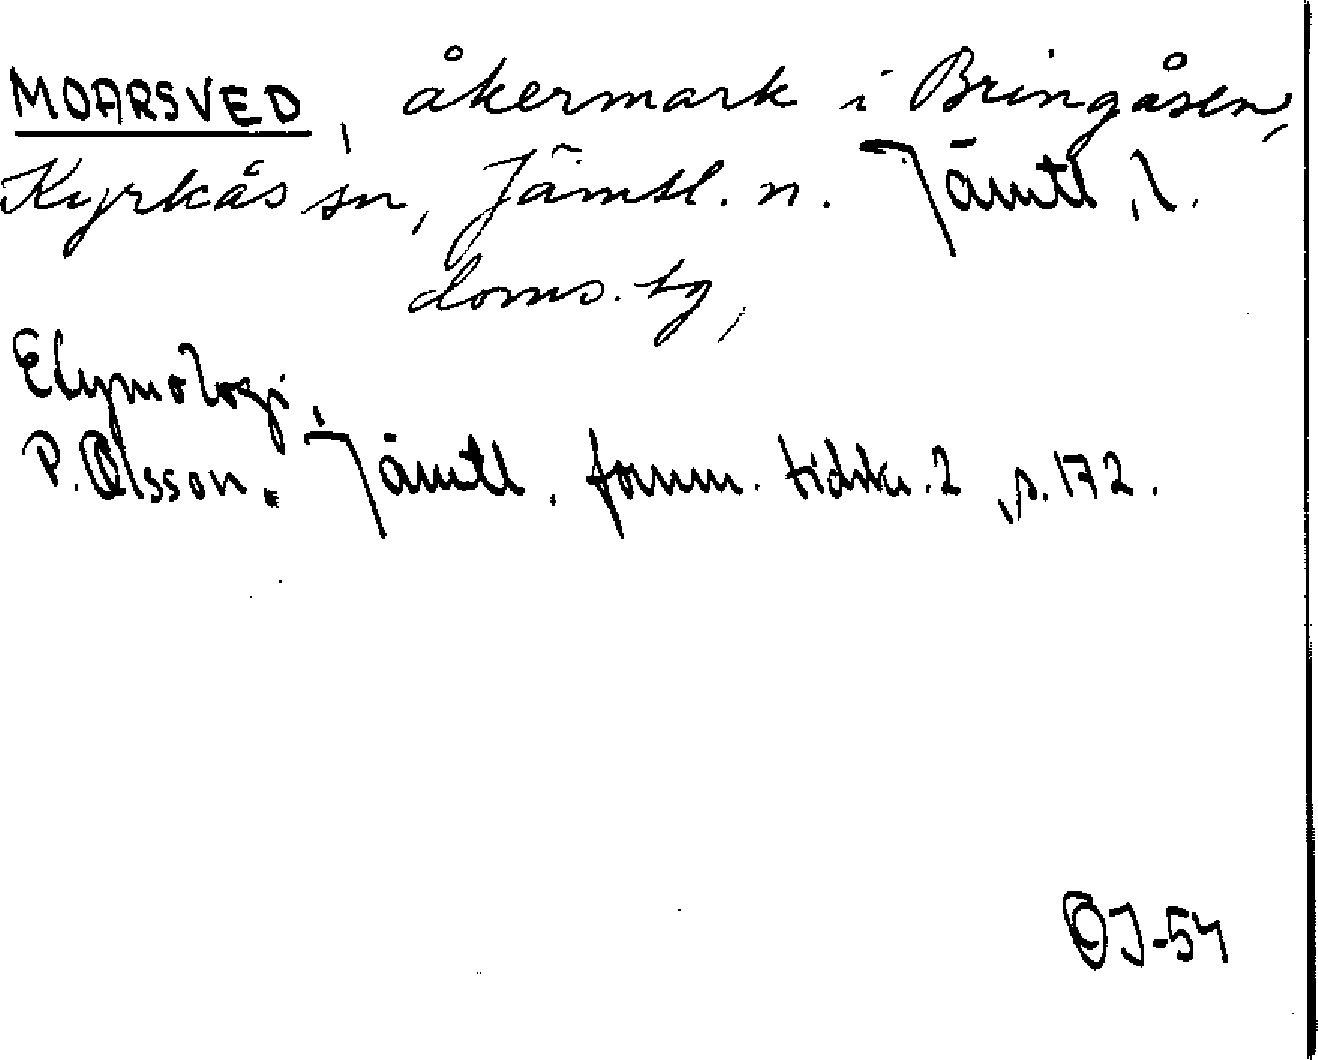 MOARSVED, åkermark i Bringåsen,
Kyrkås sn, Jämtl. n. Jämtl, l.
doms. tg,
Etymologi,
P. Olsson. Jämtl. fornm. tidskr. 2, s. 172.
OJ-54